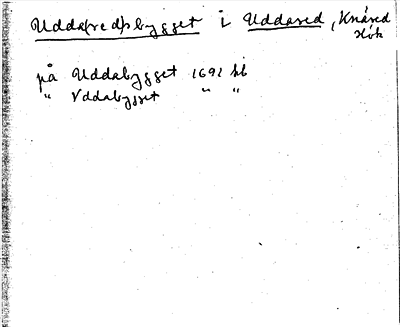 Udda(red)sbygget i Uddared, Knäred
Hök
på Uddabygget 1692 hb
" Vddabygget " "